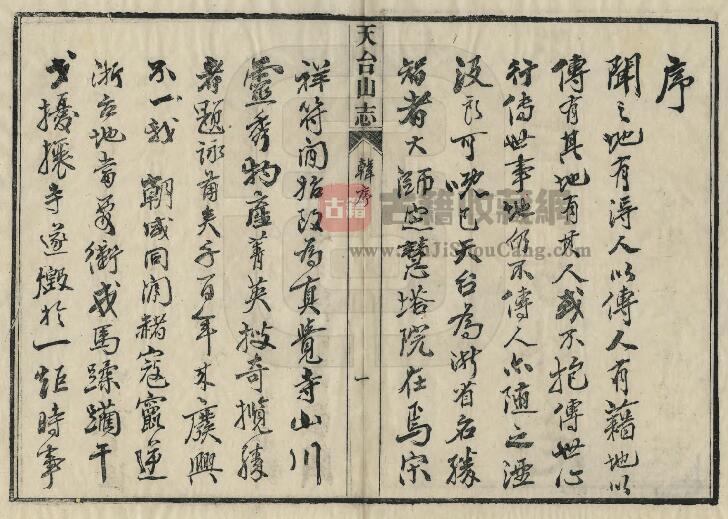 序
聞之地有得人以傳人有藉地以
傳有其地有其人或不抱傳世心
行傳世事地仍不傳人亦随之湮
沒良可嘅已天台為浙省名勝
智者大師定慧塔院在焉宋
天台山志
韓序
一
祥符间始改為真覺寺山川
靈秀物產菁英搜奇攬勝
者題詠莆矣千百年來廢興
不一我 朝咸同间赭寇竄逆
浙台地當要衝戎馬蹂躪干
戈擾攘寺遂燬於一炬時事
古籍
古籍收藏網
www.GuJiShouCang.com